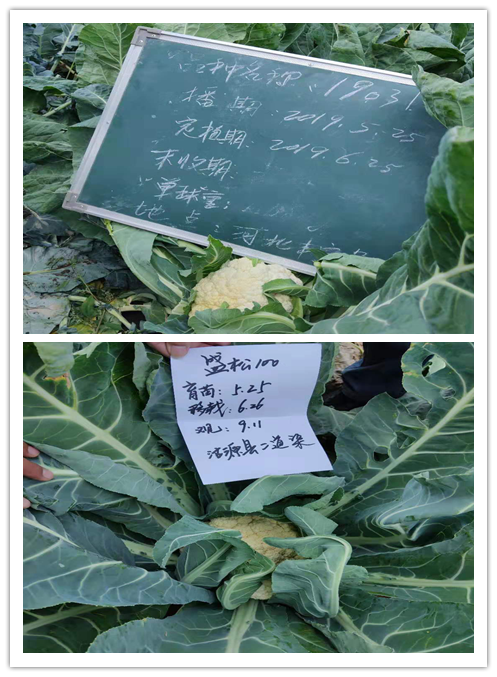 品种名称：19031
播期：2019.5.25
定植期：2019.6.25
采收期
单球重：
地点：河北
盛松100
育苗：5.25
移栽：6.26
观：9.11
沽源县二道染